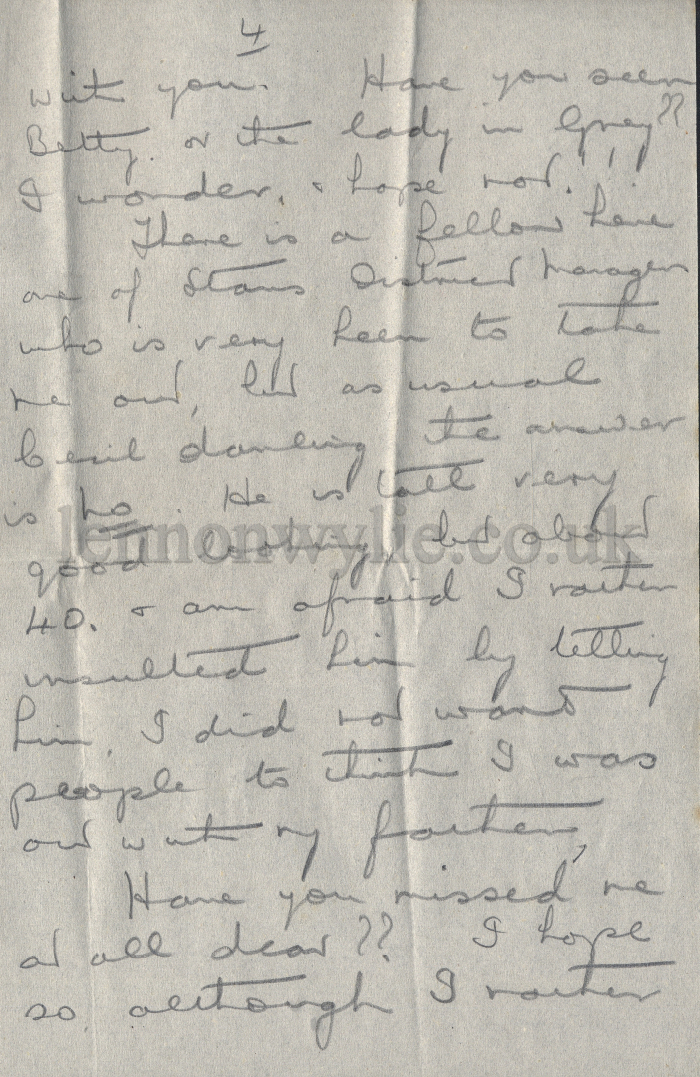 4
with you. Have you seen
Betty. or the lady in Grey??
I wonder. & hope not.!!!
There is a fellow here
one of Stans District Managers
who is very keen to take
me out, but as usual
dancing the answer
is no. He is tall very
good looking, but about
40. & am afraid I rather
insulted him by telling
him, I did not want
people to think I was
out with my father,
Have you missed me
at all dear?? I hope
so although I rather
lennonwylie.co.uk